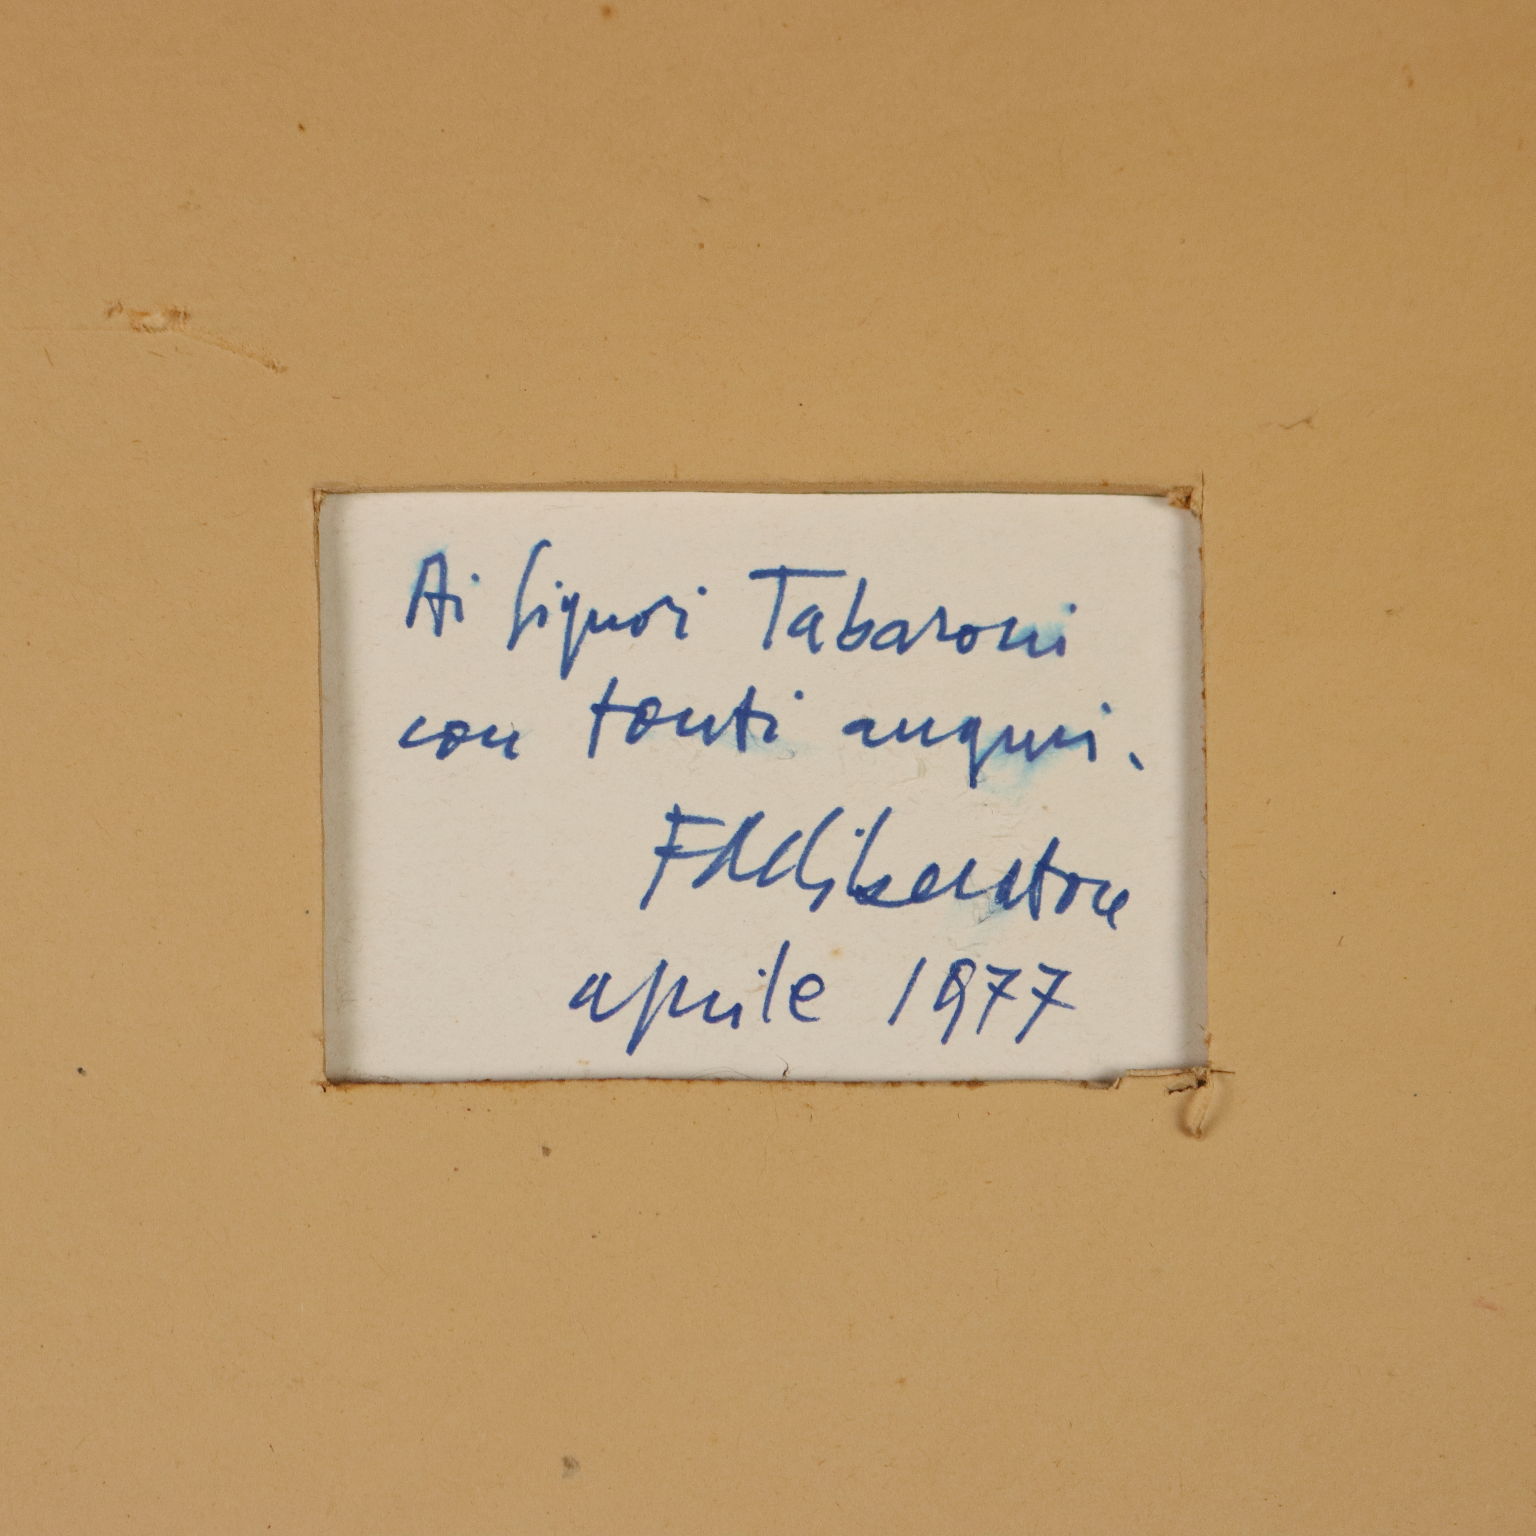 Ai Signori Tabaroni
con tanti auguri.
aprile 1977